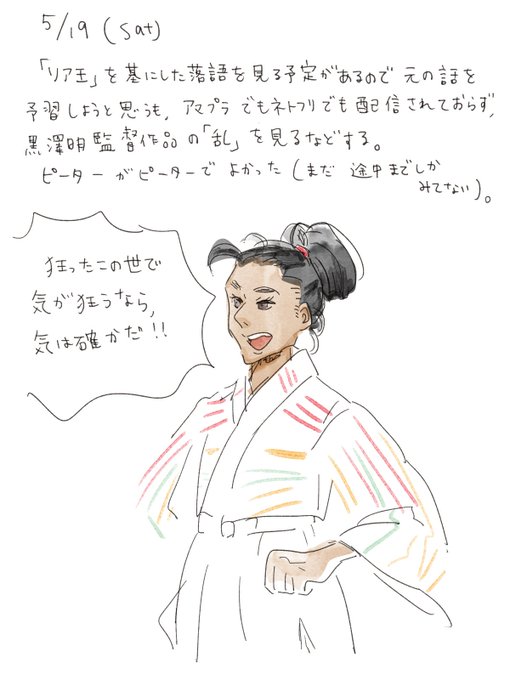 5/19 (Sat)
「リア王」を基にした落語を見る予定があるので 元の話を
予習しようと思うも、アマプラでもネトフリでも配信されておらず、
黒澤明監督作品の「乱」を見るなどする。
ピーターがピーターで よかった (まだ 途中までしか
みてない)。
狂ったこの世で
気が狂うなら、
気は確かだ!!